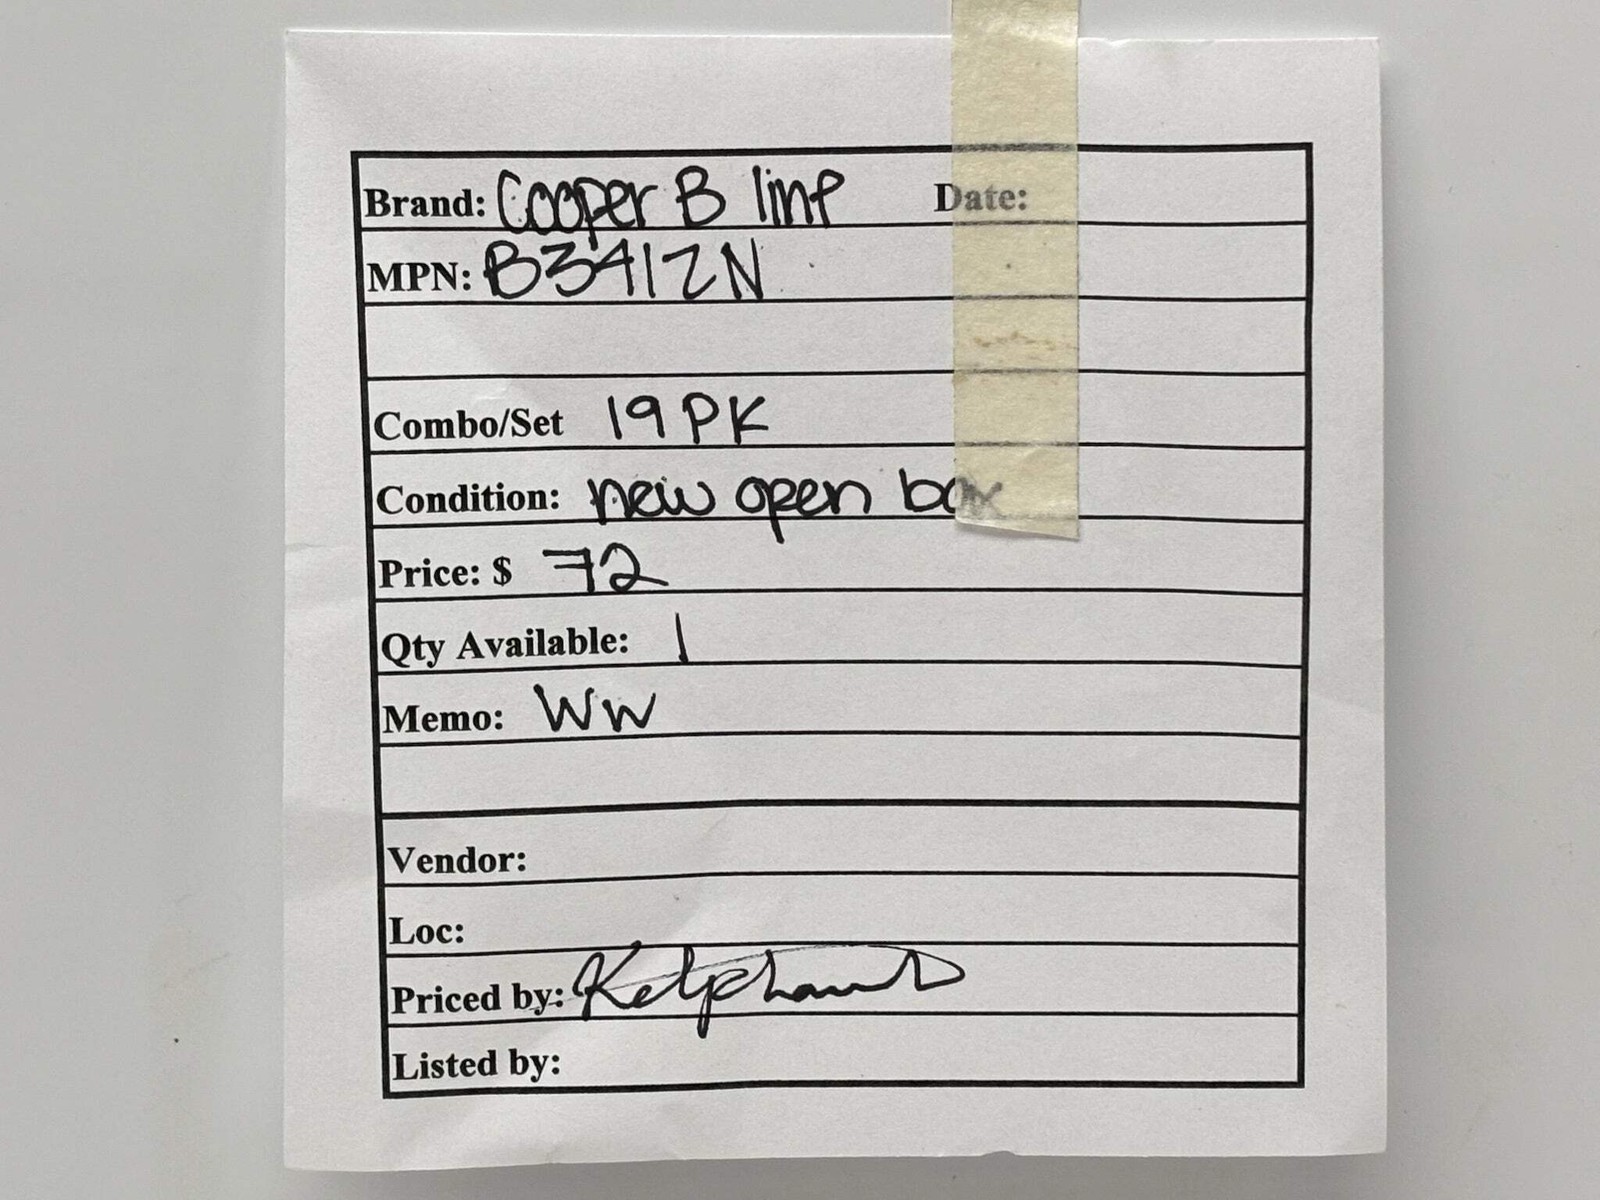 Brand: Cooper B line Date:
MPN: B3412N
Combo/Set 19 PK
Condition: new open box
Price: $ 72
Qty Available: 1
Memo: WW
Vendor:
Loc:
Priced by:
Listed by: